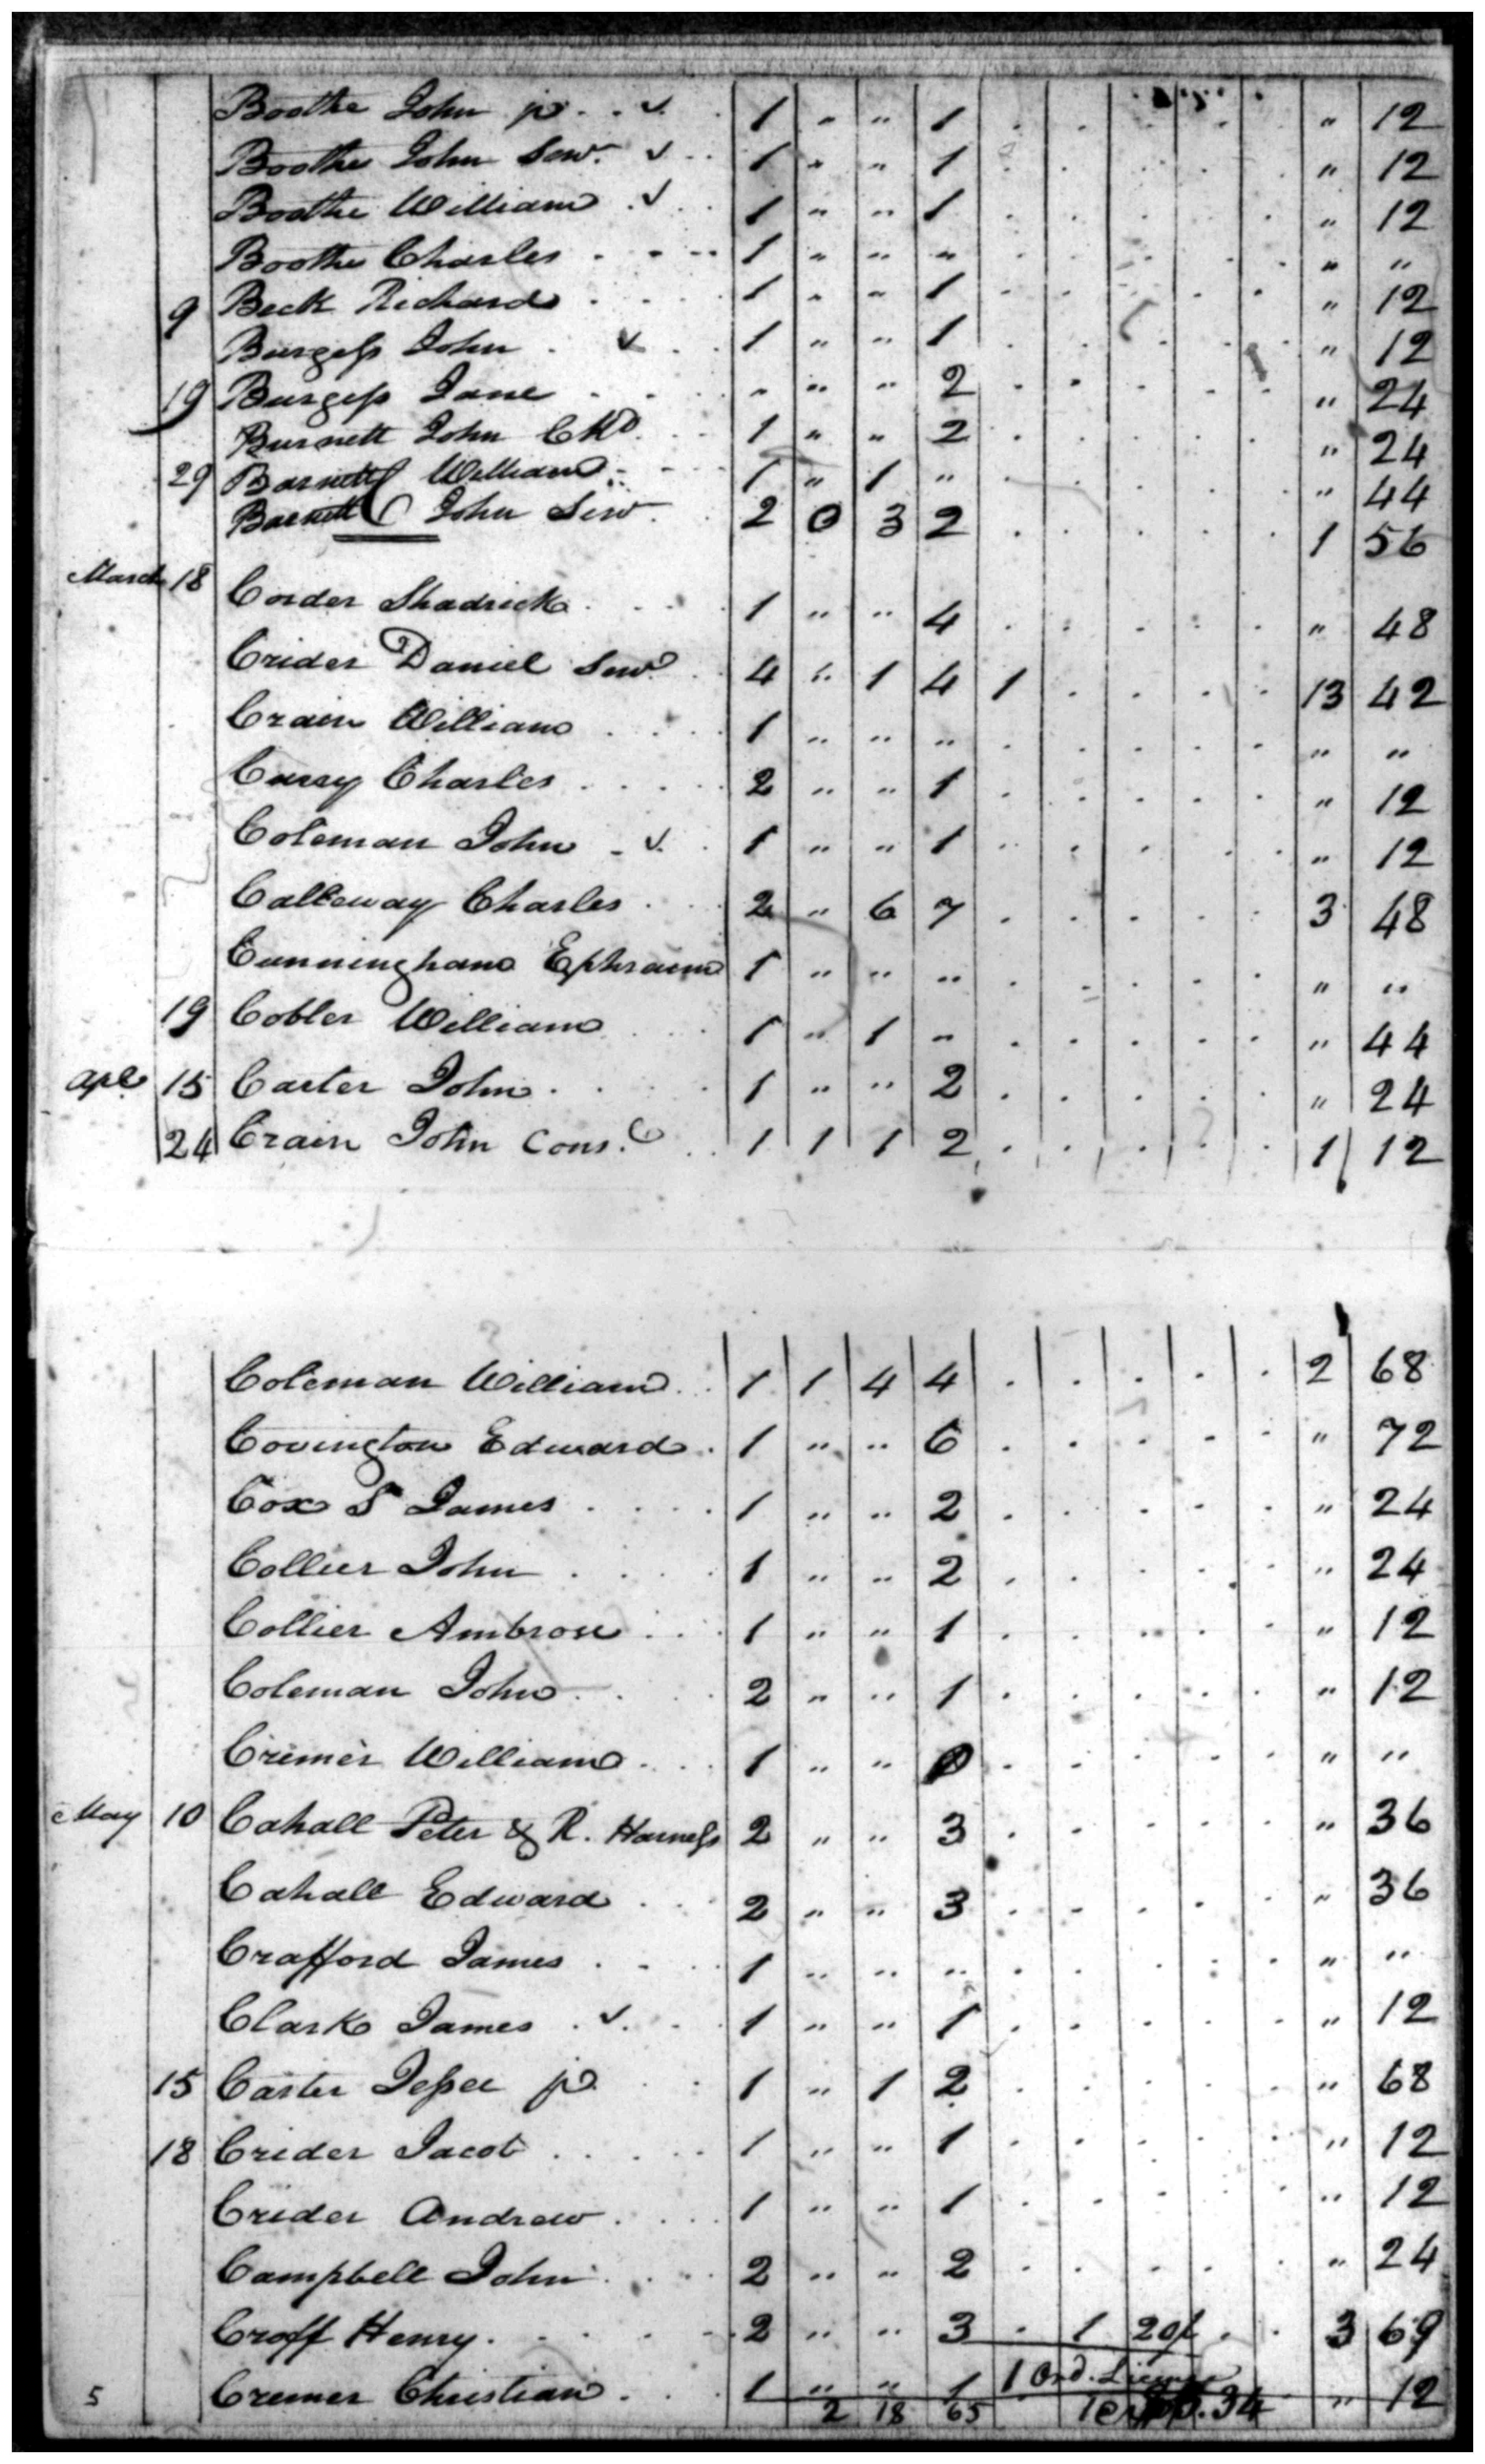 Boothe John jr . . ✓ . 1 " " 1 . . . . . " 12
Boothe John Senr. ✓ . . 1 " " 1 . . . . . " 12
Boothe William . ✓ . . 1 " " 1 . . . . . " 12
Boothe Charles . . . . 1 " " " . . . . . " "
9 Beck Richard . . . . 1 " " 1 . . . . . " 12
Burgess John . ✓ . . 1 " " 1 . . . . . " 12
19 Burgess Jane . . . . " " " 2 . . . . . " 24
Burnett John CM . . . 1 " " 2 . . . . . " 24
29 Barnett William . . . 1 " 1 " . . . . . " 44
Barnett John Senr . . 2 0 3 2 . . . . . 1 56
March 18 Corder Shadrick . . . . 1 " " 4 . . . . . " 48
Crider Daniel Senr . . 4 " 1 4 1 . . . . 13 42
Crain William . . . . 1 " " " . . . . . " "
Curry Charles . . . . 2 " " 1 . . . . . " 12
Coleman John . ✓ . 1 " " 1 . . . . . " 12
Calleway Charles . . . 2 " 6 7 . . . . . 3 48
Cunningham Ephraim 1 " " " . . . . . " "
19 Cobler William . . 1 " 1 " . . . . . " 44
Apl. 15 Carter John . . . . 1 " " 2 . . . . . " 24
24 Crain John Cons. C . . 1 1 1 2 . . . . . 1 12
Coleman William . . 1 1 4 4 . . . . . 2 68
Covington Edward . 1 " " 6 . . . . . " 72
Cox S James . . . . 1 " " 2 . . . . . " 24
Collier John . . . . 1 " " 2 . . . . . " 24
Collier Ambrose . . . 1 " " 1 . . . . . " 12
Coleman John . . . . 2 " " 1 . . . . . " 12
Cremer William . . . 1 " " 0 . . . . . " "
May 10 Cahall Peter & R. Harness 2 " " 3 . . . . . " 36
Cahall Edward . . . 2 " " 3 . . . . . " 36
Crafford James . . . . 1 " " " . . . . . " "
Clark James . ✓ . . . 1 " " 1 . . . . . " 12
15 Carter Jesse jr . . . 1 " 1 2 . . . . . " 68
18 Crider Jacob . . . . . 1 " " 1 . . . . . " 12
Crider Andrew . . . . 1 " " 1 . . . . . " 12
Campbell John . . . . 2 " " 2 . . . . . " 24
Croff Henry . . . . . 2 " " 3 . 1 20f . . 3 69
1 Ord. License
5 Cremer Christian . . . 1 " " 1 . . . . . " 12
2 18 65 34